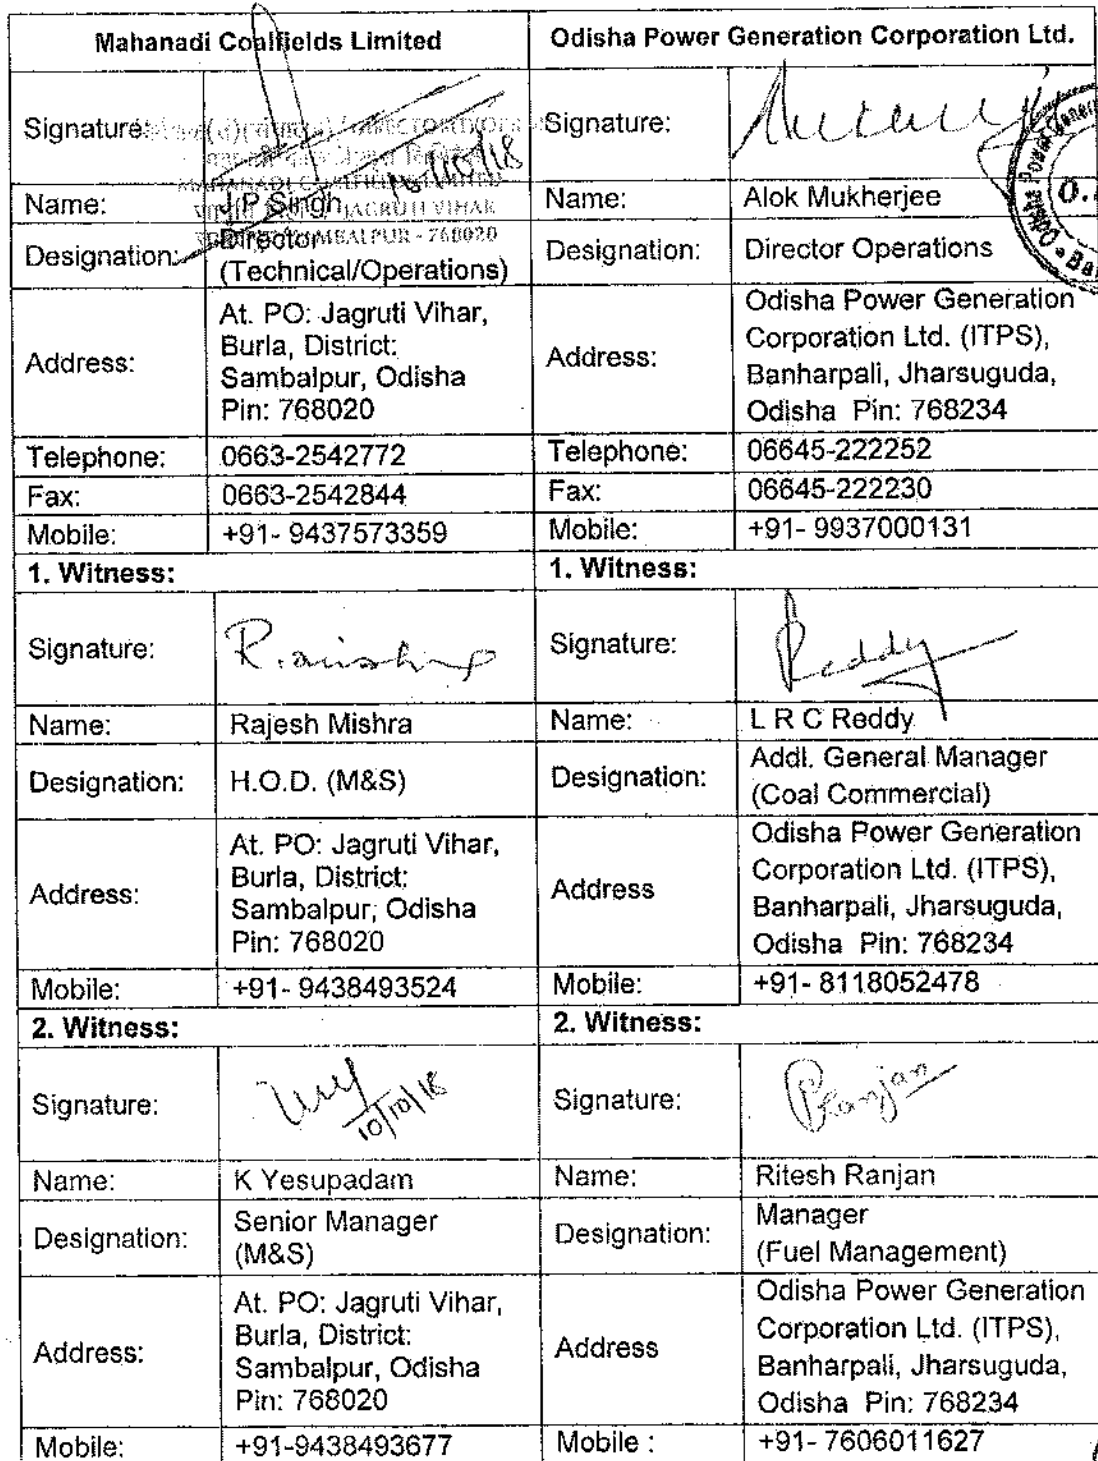 Mahanadi Coalfields Limited
Odisha Power Generation Corporation Ltd.
Signature:
Signature:
10/10/18
MAHANADI COALFIELDS LIMITED
JAGRUTI VIHAR
SAMBALPUR - 768020
Name: J P Singh
Name: Alok Mukherjee
Designation: Director
(Technical/Operations)
Designation: Director Operations
Address: At. PO: Jagruti Vihar,
Burla, District:
Sambalpur, Odisha
Pin: 768020
Address: Odisha Power Generation
Corporation Ltd. (ITPS),
Banharpali, Jharsuguda,
Odisha Pin: 768234
Telephone: 0663-2542772
Telephone: 06645-222252
Fax: 0663-2542844
Fax: 06645-222230
Mobile: +91- 9437573359
Mobile: +91- 9937000131
1. Witness:
1. Witness:
Signature:
Signature: Reddy
Name: Rajesh Mishra
Name: L R C Reddy
Designation: H.O.D. (M&S)
Designation: Addl. General Manager
(Coal Commercial)
Address: At. PO: Jagruti Vihar,
Burla, District:
Sambalpur, Odisha
Pin: 768020
Address Odisha Power Generation
Corporation Ltd. (ITPS),
Banharpali, Jharsuguda,
Odisha Pin: 768234
Mobile: +91- 9438493524
Mobile: +91- 8118052478
2. Witness:
2. Witness:
Signature: 10/10/18
Signature: Ranjan
Name: K Yesupadam
Name: Ritesh Ranjan
Designation: Senior Manager
(M&S)
Designation: Manager
(Fuel Management)
Address: At. PO: Jagruti Vihar,
Burla, District:
Sambalpur, Odisha
Pin: 768020
Address Odisha Power Generation
Corporation Ltd. (ITPS),
Banharpali, Jharsuguda,
Odisha Pin: 768234
Mobile: +91-9438493677
Mobile : +91- 7606011627